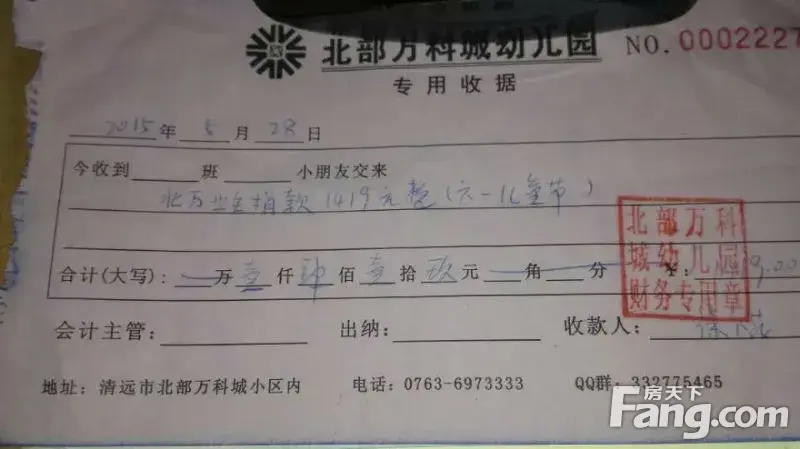 北部万科城幼儿园 NO.0002227
专用收据
2015年5月28日
今收到 班 小朋友交来
北万业主捐款1419元整（六一儿童节）
合计(大写): 万壹仟肆佰壹拾玖元 角 分 ¥: 19.00
北部万科
城幼儿园
财务专用章
会计主管: 出纳: 收款人:
地址: 清远市北部万科城小区内 电话: 0763-6973333 QQ群: 332775465
房天下
Fang.com